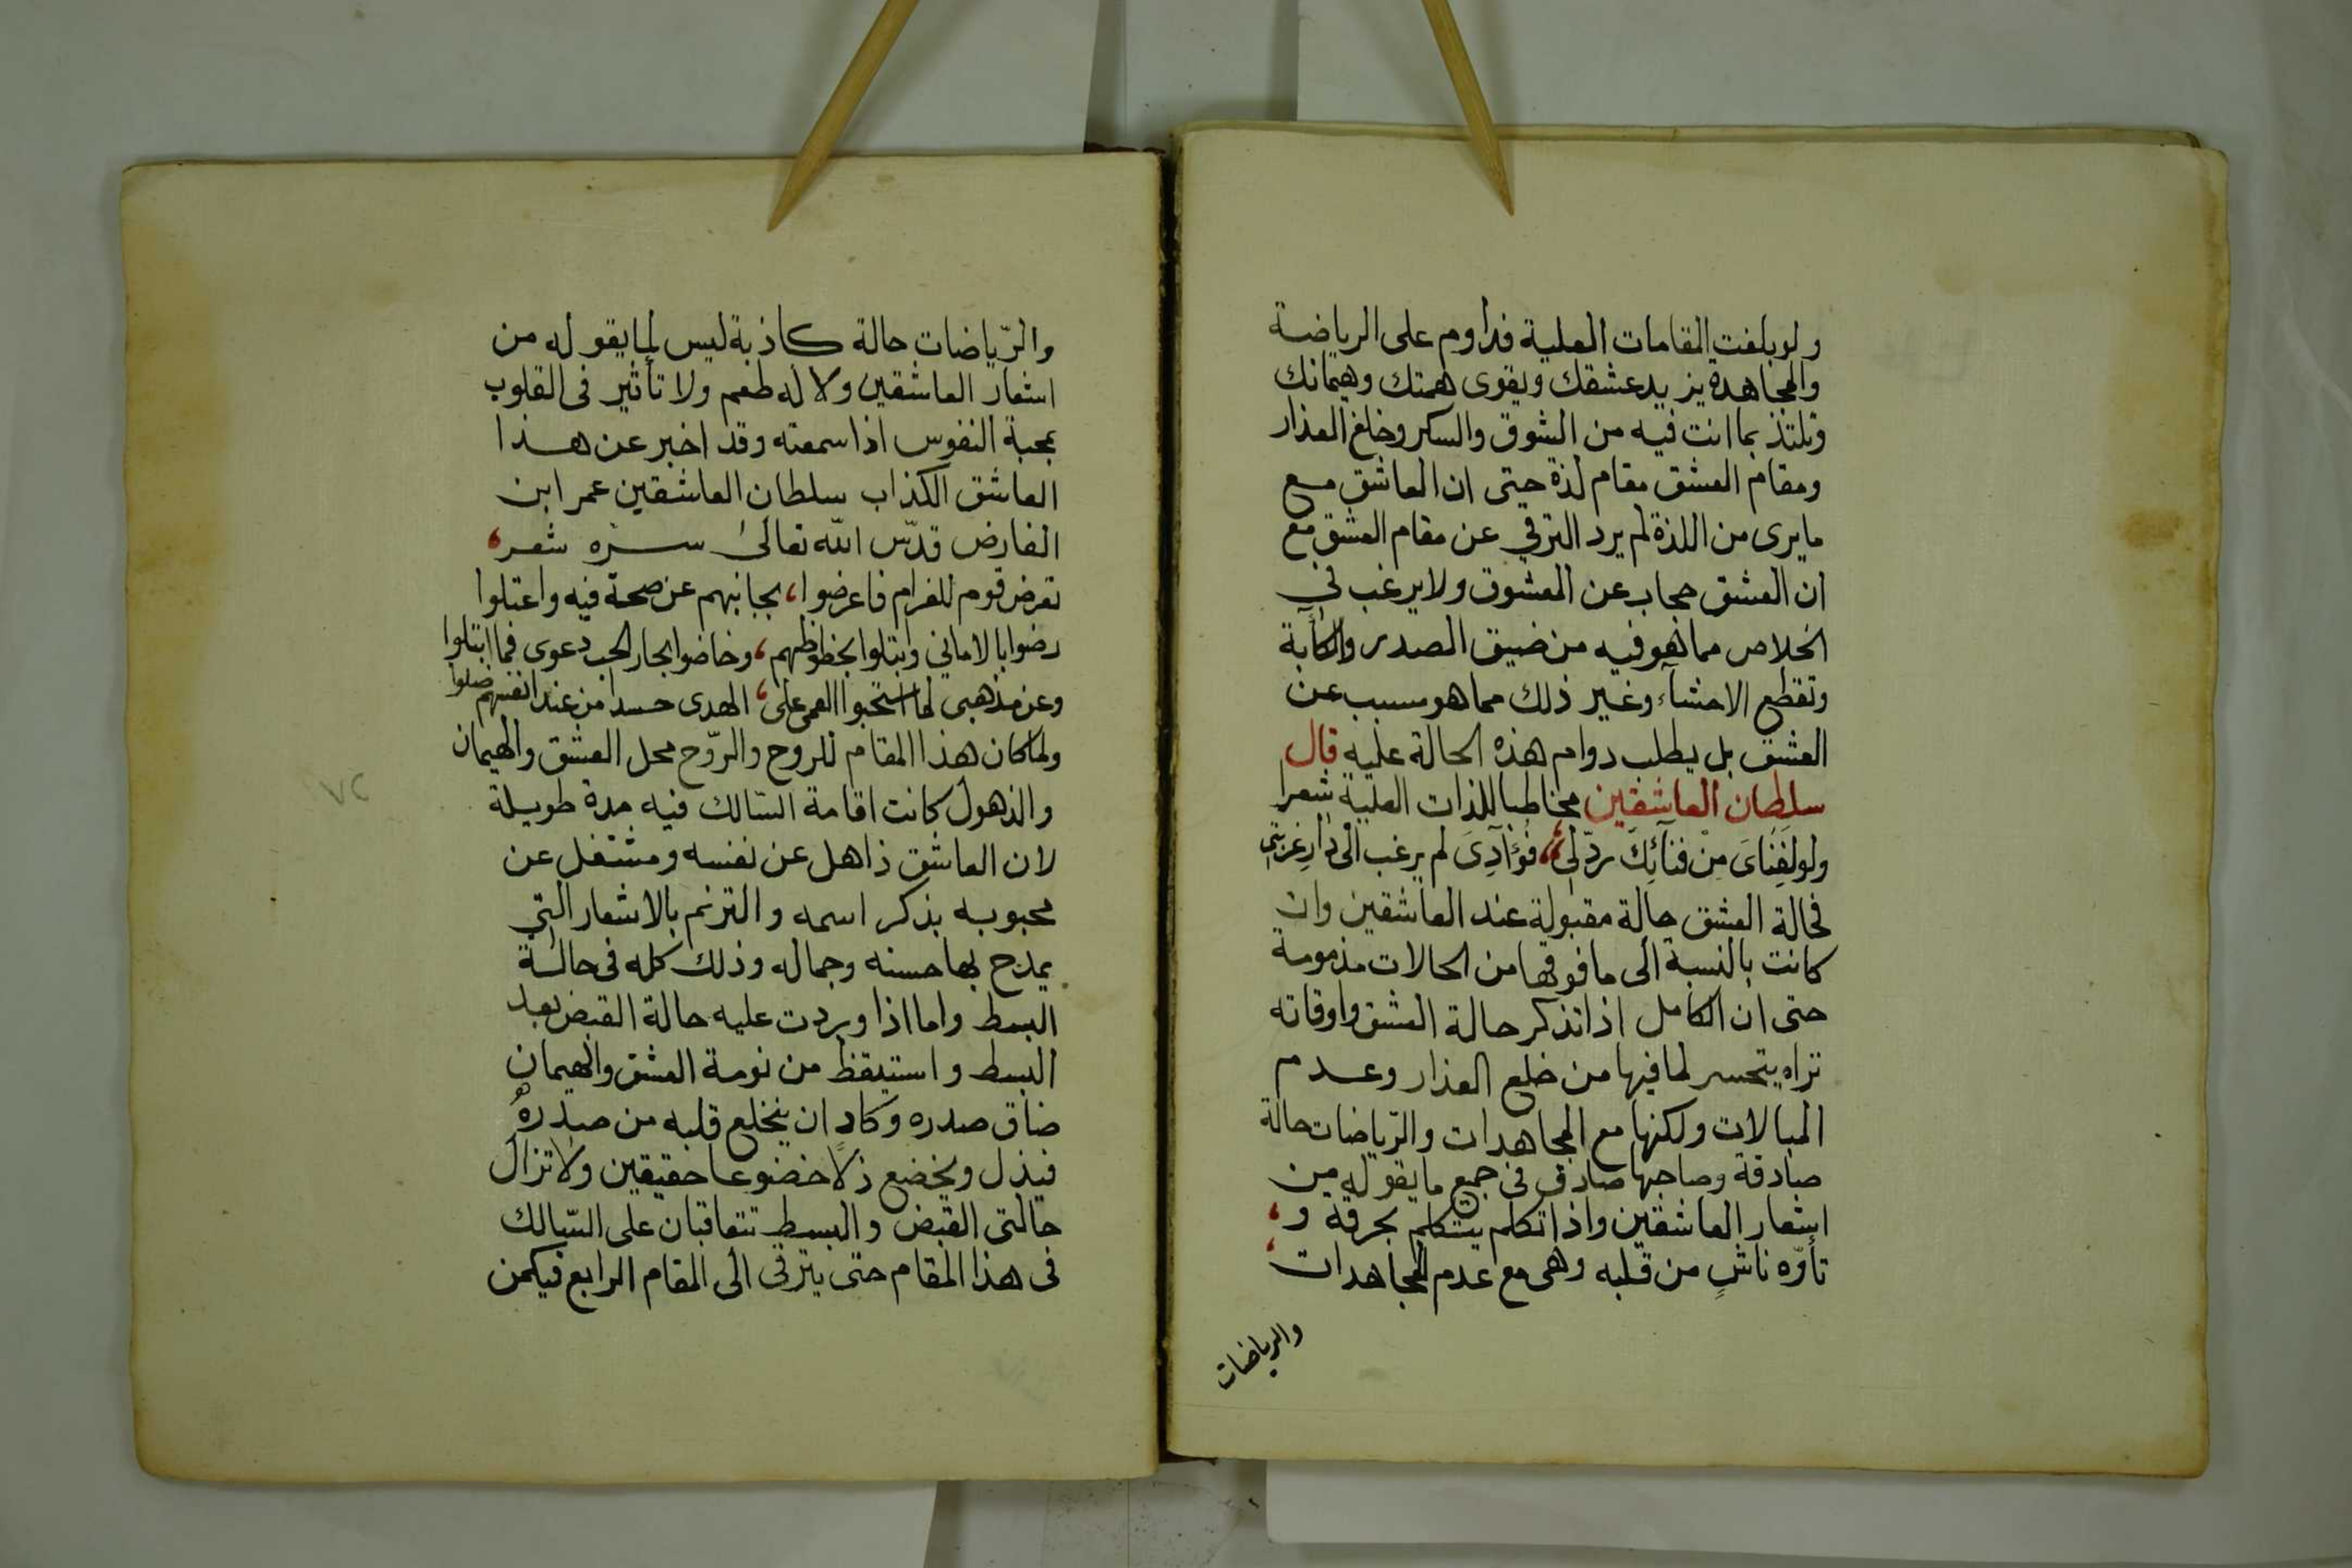 ولو بلغت المقامات العلية فداوم على الرياضة
والمجاهدة يزيد عشقك ويقوى همتك وهيمانك
وتلتذ بما انت فيه من الشوق والسكر وخلع العذار
ومقام العشق مقام لذة حتى ان العاشق مع
ما يرى من اللذة لم يرد الترقي عن مقام العشق مع
ان العشق حجاب عن المعشوق ولا يرغب في
الخلاص مما هو فيه من ضيق الصدر والكآبة
وتقطع الاحشآء وغير ذلك مما هو مسبب عن
العشق بل يطلب دوام هذه الحالة عليه قال
سلطان العاشقين مخاطبا للذات العلية شعرا
ولو لفناى من فنآئك ردّ لى، فؤآدى لم يرغب الى دار غربتي
فحالة العشق حالة مقبولة عند العاشقين وان
كانت بالنسبة الى ما فوقها من الحالات مذمومة
حتى ان الكامل اذا تذكر حالة العشق واوقاته
تراه يتحسر لما فيها من خلع العذار وعدم
المبالات ولكنها مع المجاهدات والرّياضات حالة
صادقة وصاحبها صادق فى جميع ما يقوله من
اشعار العاشقين واذا تكلم يتكلم بحرقة و،
تأوّه ناشٍ من قلبه وهى مع عدم المجاهدات،
والرياضات
والرّياضات حالة كاذبة ليس لما يقوله من
اشعار العاشقين ولا له طعم ولا تأثير فى القلوب
بمحبة النفوس اذا سمعته وقد اخبر عن هذا
العاشق الكذاب سلطان العاشقين عمر ابن
الفارض قدّس الله تعالى سره شعر،
تعرض قوم للغرام فاعرضوا، بجانبهم عن صحة فيه واعتلوا
رضوا بالاماني وابتلوا بحظوظهم، وخاضوا بحار الحب دعوى فما ابتلوا
وعن مذهبي لما استحبوا العمى على، الهدى حسدا من عند انفسهم ضلوا
ولما كان هذا المقام للروح والرّوح محل العشق والهيمان
والذهول كانت اقامة السّالك فيه مدة طويلة
لان العاشق ذاهل عن نفسه ومشتغل عن
محبوبه بذكر اسمه والترنم بالاشعار التي
يمدح بها حسنه وجماله وذلك كله فى حالة
البسط واما اذا وردت عليه حالة القبض بعد
البسط واستيقظ من نومة العشق والهيمان
ضاق صدره وكاد ان ينخلع قلبه من صدره
فيذل ويخضع ذلًا خضوعا حقيقين ولا تزال
حالتى القبض والبسط تتعاقبان على السّالك
فى هذا المقام حتى يترقى الى المقام الرابع فيكمن
٧٢